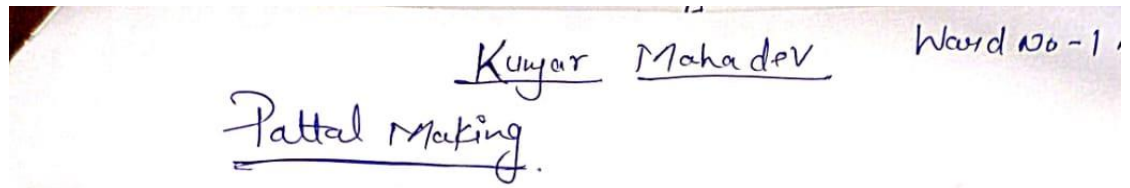 Kunjar Mahadev Ward No-1
Pattal Making.